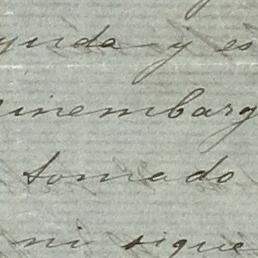 yuda y es
inembarg
tomado
ni sique